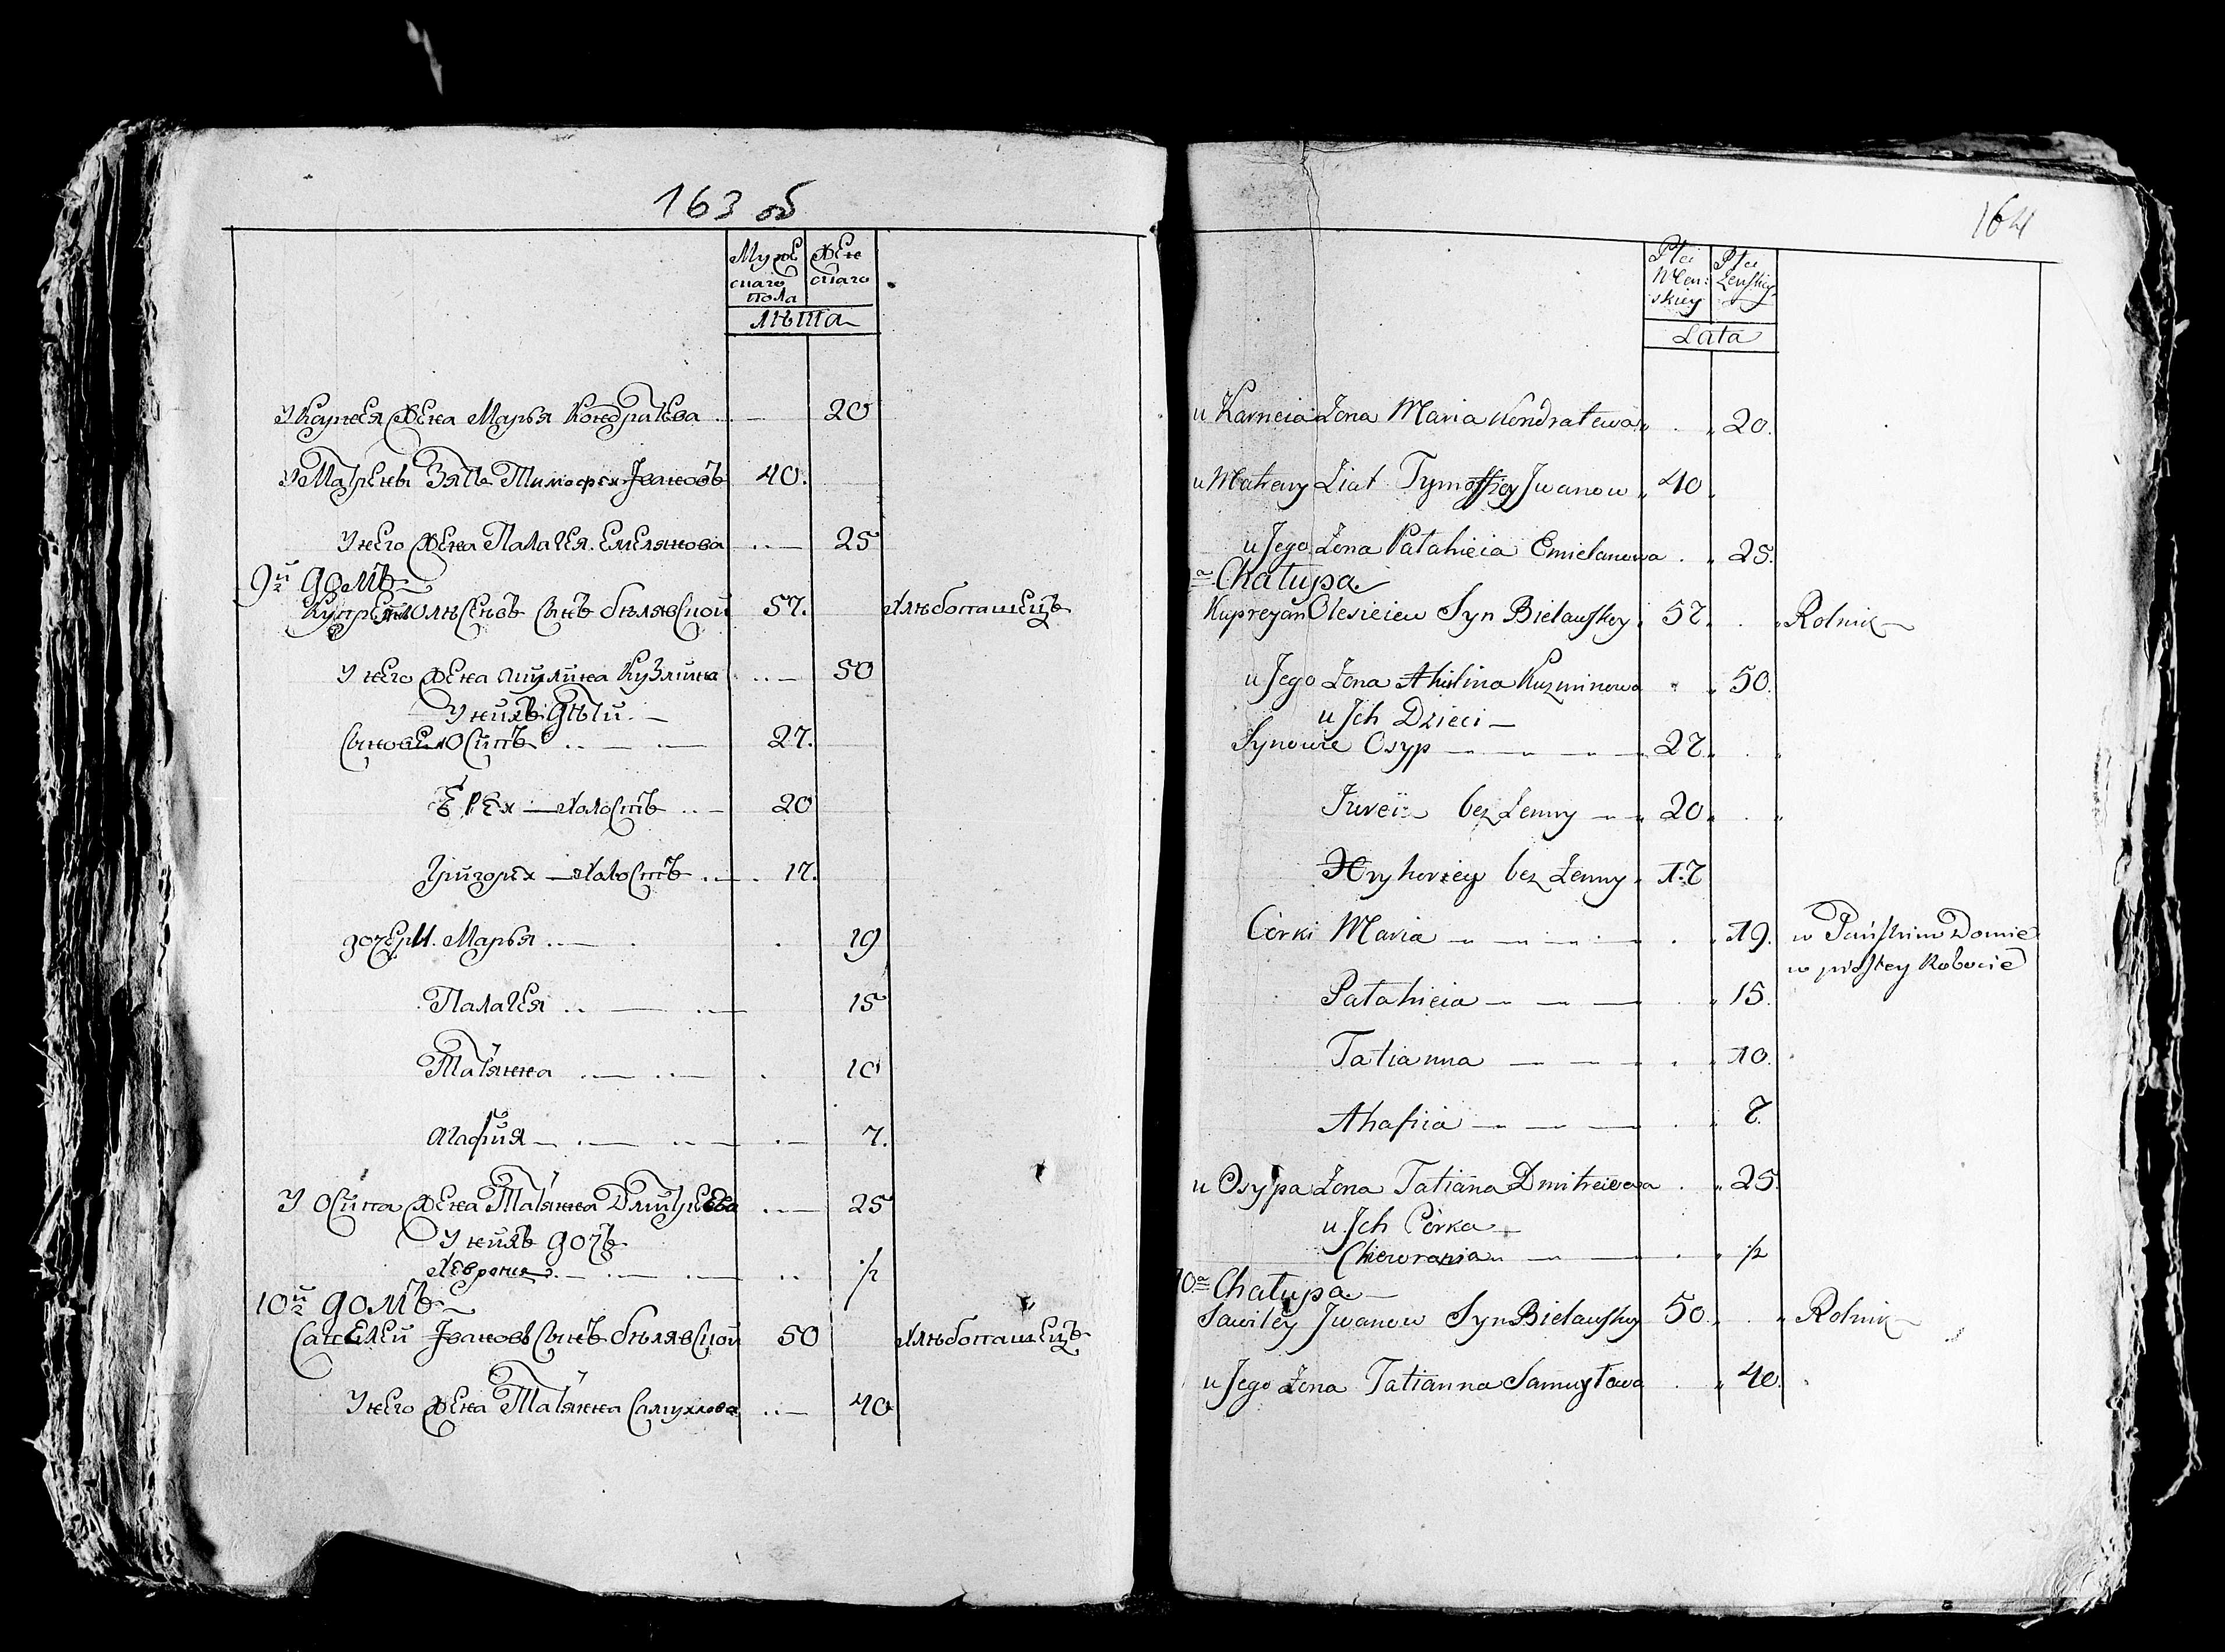 163 об
Муже
скаго
пола
Жен
скаго
лѣта
У Карнея Жена Марья Кондратева 20
У Матрены Зять Тимофей Iвановъ 40.
У него Жена Палагея Емелянова 25
9й домъ
Купреянъ Олѣсеевъ Сынъ бѣлявской 57. Хлѣбопашецъ
У него Жена Акулина Кузмина 50
У нихъ дѣти
Сыновья Осипъ 27.
холостъ 20
Григорей холостъ 17.
дочери Марья 19
Палагея 15
Татянна 10
Агафия 7.
У Осипа Жена Татянна Дмитреева 25
У нихъ дочь
Хеврония 1/2
10й домъ
Савелей Iвановъ Сынъ бѣлявской 50 Хлѣбопашецъ
У него Жена Татянна Самуйлова 40
164
Płci
Męs:
skiey
Płci
Zenskiey
Lata
u Karneia Zona Maria Kondratewa 20.
u Matreny Ziat Tymoffiey Jwanow 40
u Jego Zona Pałahieia Emielanowa 25.
Chałupa
Kupreyan Olesieiew Syn Bielawskey 57 Rolnik
u Jego Zona Akulina Kuzminowa 50.
u Jch Dzieci
Synowie Osyp 27
bez Zenny 20
Hryhorzey bez Zenny 17
Córki Maria 19. w Pańskim Domie
w Robocie
Pałahieia 15.
Tatianna 10.
Ahafiia 7
u Osypa Zona Tatianna Dmitreiewa 25.
u Jch Córka
Chiewrania 1/2
10a Chałupa
Sawiley Jwanow Syn Bielawskey 50. Rolnik
u Jego Zona Tatianna Samuyłowa 40.